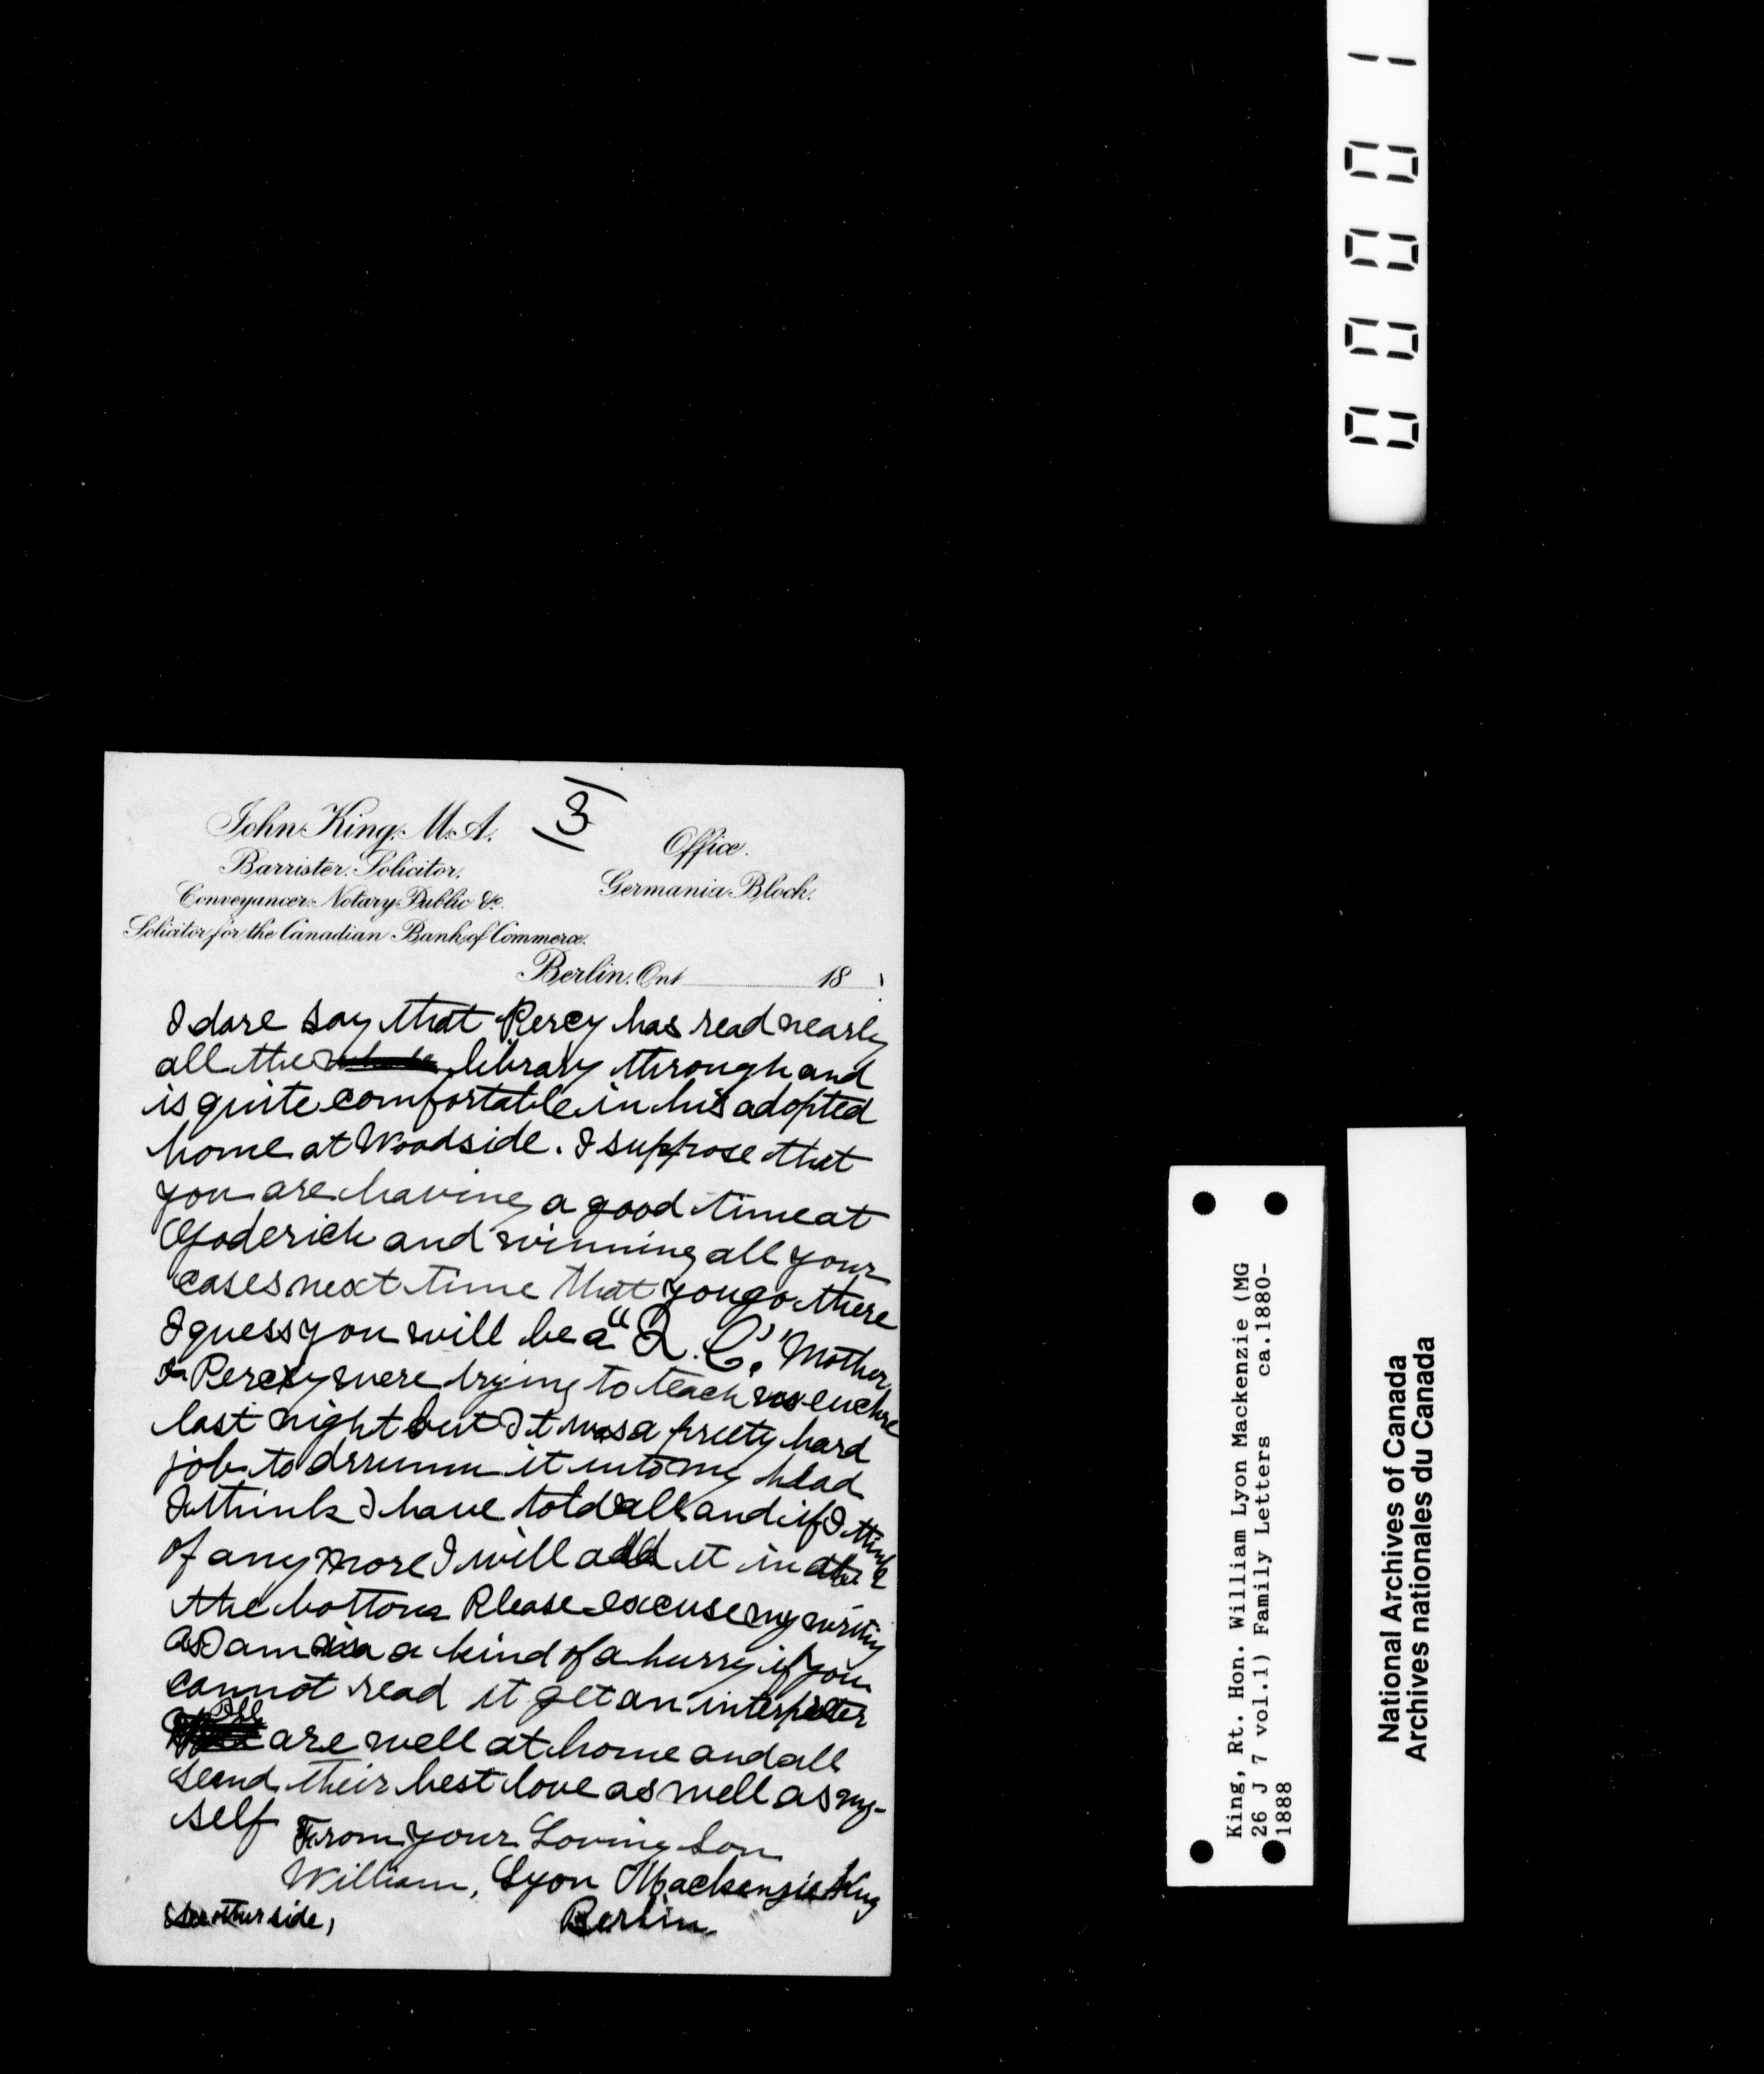 3
John King, M.A.
Barrister, Solicitor,
Conveyancer, Notary Public &c.
Solicitor for the Canadian Bank of Commerce.
Office.
Germania Block.
Berlin, Ont 18
I dare say that Percy has read nearly
all the library through and
is quite comfortable in his adopted
home at Woodside. I suppose that
you are having a good time at
Goderich and winning all your
cases next time that you go there
I guess you will be a "Q.C." Mother
& Percy were trying to teach us euchre
last night but it was a pretty hard
job to drumm it into my head
I think I have told all and if I think
of any more I will add it in at
the bottom Please excuse my writing
as I am in a kind of a hurry if you
cannot read it get an interpreter
All are well at home and all
send their best love as well as my-
self
From your Loving Son
William, Lyon Mackenzie King
Berlin.
See other side,
00001
King, Rt. Hon. William Lyon Mackenzie (MG
26 J 7 vol.1) Family Letters ca.1880-
1888
National Archives of Canada
Archives nationales du Canada